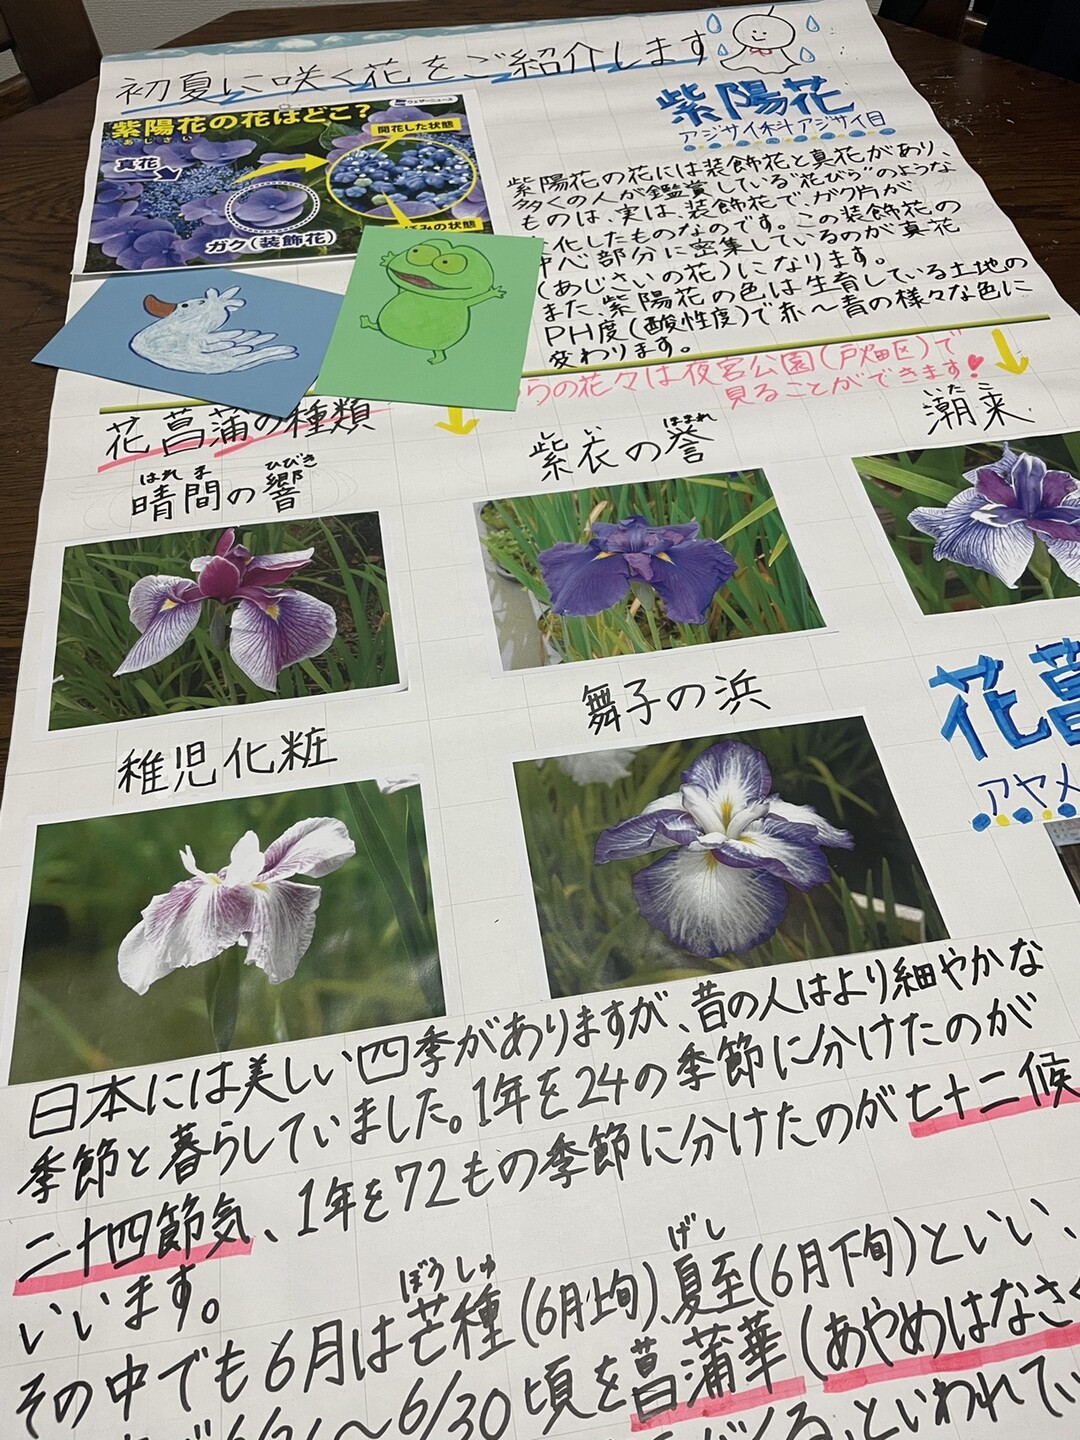 初夏に咲く花をご紹介します
ウェザーニュース
紫陽花の花はどこ?
あじさい
開花した状態
真花
ガク(装飾花)
みの状態
紫陽花
アジサイ科アジサイ目
紫陽花の花には装飾花と真花があり、
多くの人が鑑賞している"花びら"のような
ものは、実は、装飾花で、ガク片が
化したものなのです。この装飾花の
中心部分に密集しているのが真花
(あじさいの花)になります。
また、紫陽花の色は生育している土地の
PH度(酸性度)で赤〜青の様々な色に
変わります。
らの花々は夜宮公園(戸畑区)で
見ることができます!
花菖蒲の種類
はれま ひびき
晴間の響
い ほまれ
紫衣の誉
いたこ
潮来
稚児化粧
舞子の浜
花菖
アヤメ
日本には美しい四季がありますが、昔の人はより細やかな
季節と暮らしていました。1年を24の季節に分けたのが
二十四節気、1年を72もの季節に分けたのが七十二候
いいます。
ぼうしゅ げし
その中でも6月は芒種(6月上旬)、夏至(6月下旬)といい、
〜6/30頃を菖蒲華(あやめはなさく
といわれてい